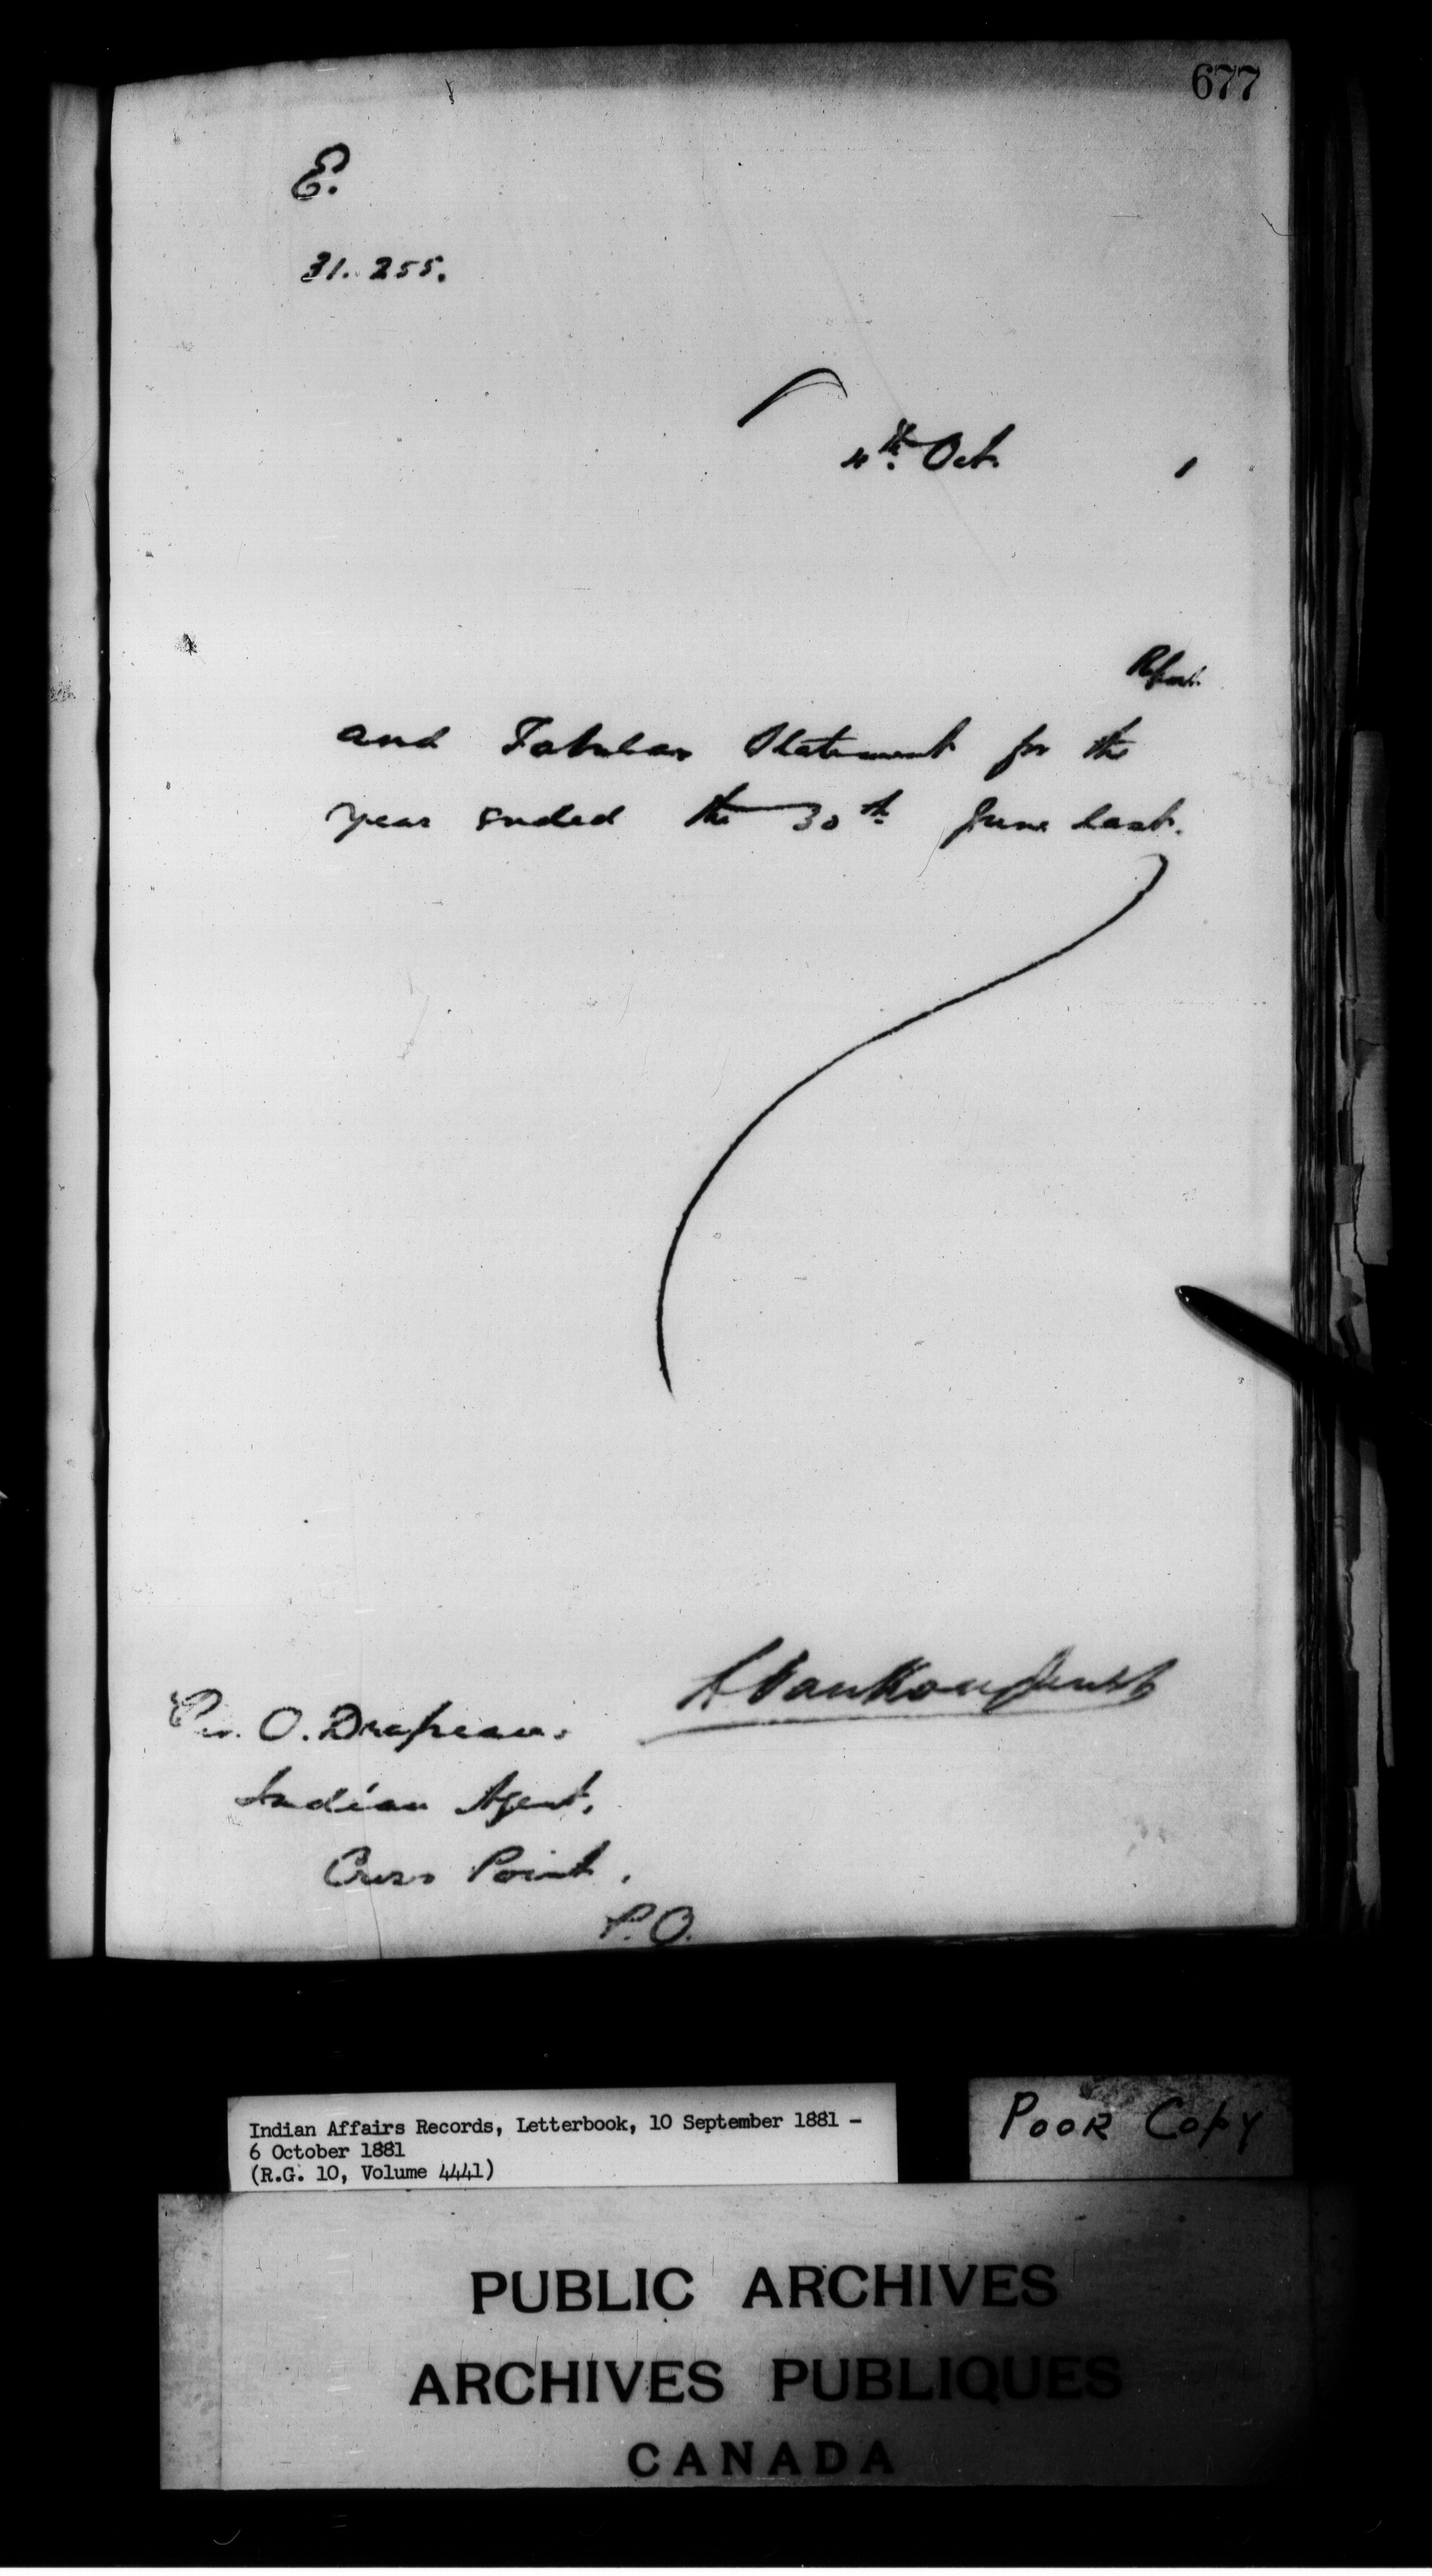 677
E.
31.255.
4th Oct. 1
Report
and Tabular Statement for the
year ended the 30th June last.
L VanKoughnet
Rev. O. Drapeau.
Indian Agent,
Cross Point,
P.Q.
Indian Affairs Records, Letterbook, 10 September 1881 -
6 October 1881
(R.G. 10, Volume 4441)
POOR COPY
PUBLIC ARCHIVES
ARCHIVES PUBLIQUES
CANADA